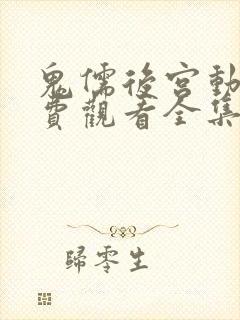 鬼儒後宮動
費觀看全集
歸零生